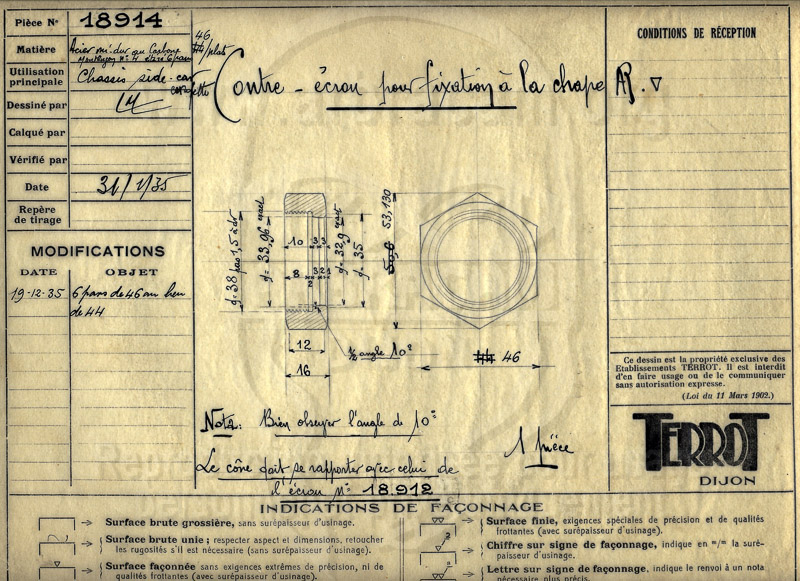 Pièce N° 18914
Matière Acier mi-dur au Carbone
46
44/plat
Utilisation principale Chassis side-car
Dessiné par
Calqué par
Vérifié par
Date 31/1/35
Repère de tirage
Contre-écrou pour fixation à la chape AR. ▽
CONDITIONS DE RÉCEPTION
MODIFICATIONS
DATE OBJET
19-12-35 6 pans de 46 au lieu
de 44
d=38 pas 1,5 à dr
d=33,96 exact
10 3 3
8 3 2 1
2
d=32,9 exact
d=35
53,130
12
16
1/2 angle 10°
44 46
Nota: Bien observer l'angle de 10°
1 pièce
Le cône doit se rapporter avec celui de
l'écrou N° 18.912
Ce dessin est la propriété exclusive des
Etablissements TERROT. Il est interdit
d'en faire usage ou de le communiquer
sans autorisation expresse.
(Loi du 11 Mars 1902.)
TERROT
DIJON
INDICATIONS DE FAÇONNAGE
Surface brute grossière, sans surépaisseur d'usinage.
Surface brute unie; respecter aspect et dimensions, retoucher
les rugosités s'il est nécessaire (sans surépaisseur d'usinage).
Surface façonnée sans exigences extrêmes de précision, ni de
qualités frottantes (avec surépaisseur d'usinage).
Surface finie, exigences spéciales de précision et de qualités
frottantes (avec surépaisseur d'usinage).
Chiffre sur signe de façonnage, indique en m/m la suré-
paisseur d'usinage.
Lettre sur signe de façonnage, indique le renvoi à un nota
nécessaire plus précis.